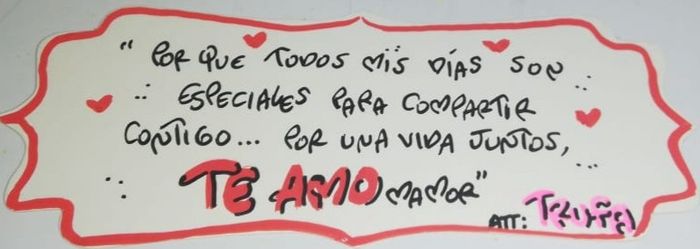 "POR QUE TODOS MIS DÍAS SON
ESPECIALES PARA COMPARTIR
CONTIGO... POR UNA VIDA JUNTOS,
TE AMO MAMOR"
ATT: